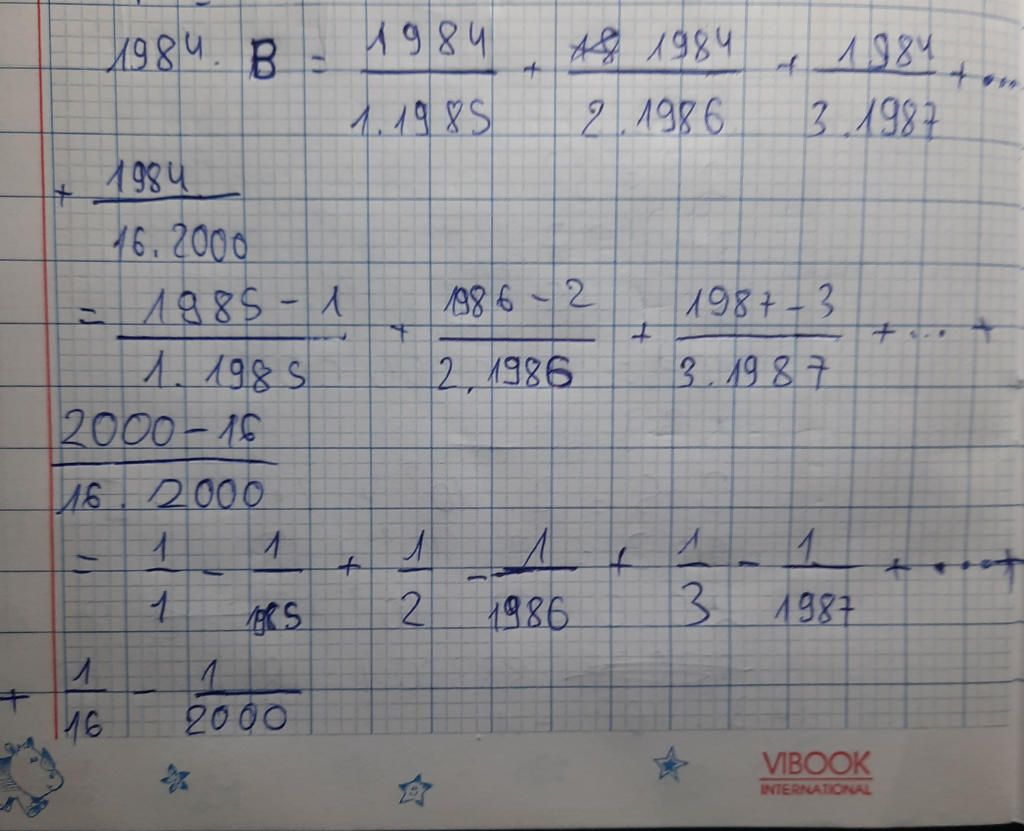 1984. B = 1984/1.1985 + 1984/2.1986 + 1984/3.1987 + ...
+ 1984/16.2000
= 1985 - 1/1.1985 + 1986 - 2/2.1986 + 1987 - 3/3.1987 + ... +
2000 - 16/16.2000
= 1/1 - 1/1985 + 1/2 - 1/1986 + 1/3 - 1/1987 + .... +
+ 1/16 - 1/2000
VIBOOK
INTERNATIONAL